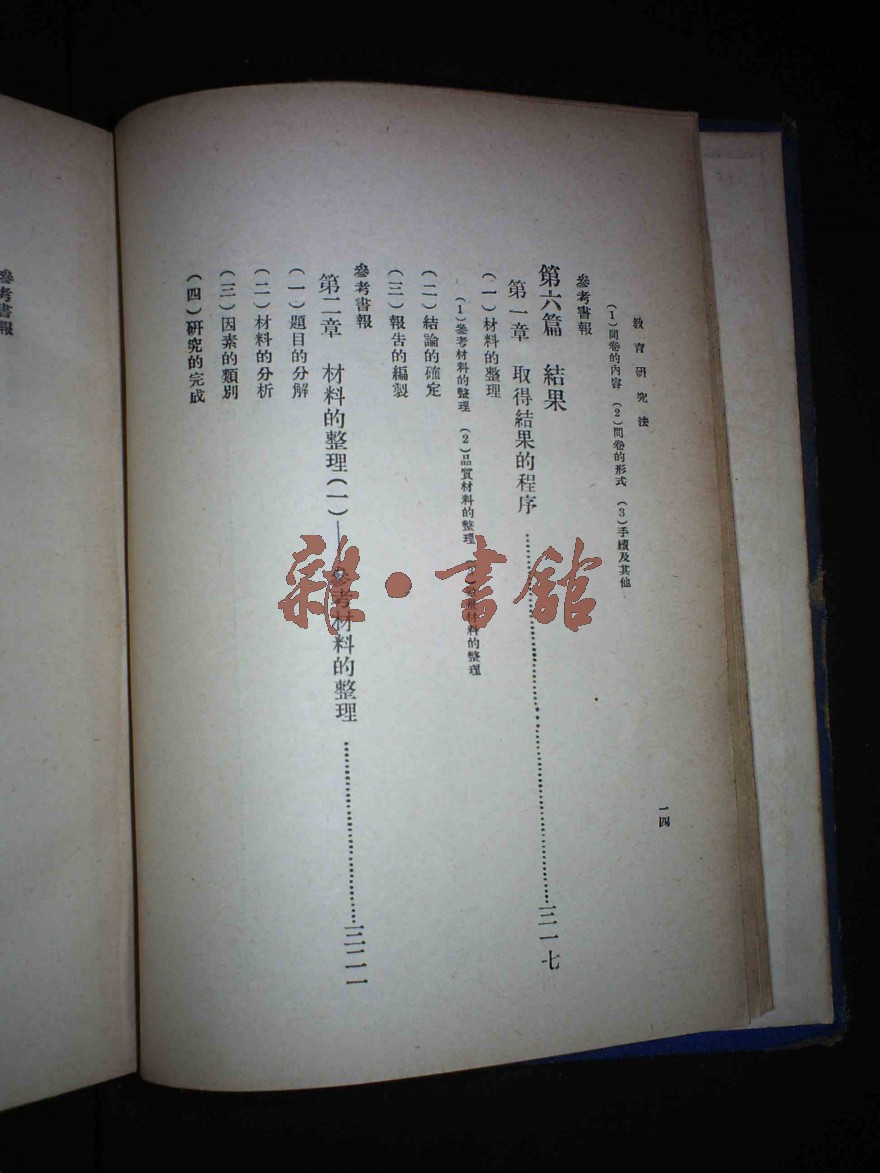 教育研究法
一四
(1)問卷的內容 (2)問卷的形式 (3)手續及其他
參考書報
第六篇 結果
第一章 取得結果的程序……三一七
(一)材料的整理
(1)參考材料的整理 (2)品質材料的整理 材料的整理
(二)結論的確定
(三)報告的編製
參考書報
第二章 材料的整理(一)—參考材料的整理……三二一
(一)題目的分解
(二)材料的分析
(三)因素的類別
(四)研究的完成
參考書報
雜·書館